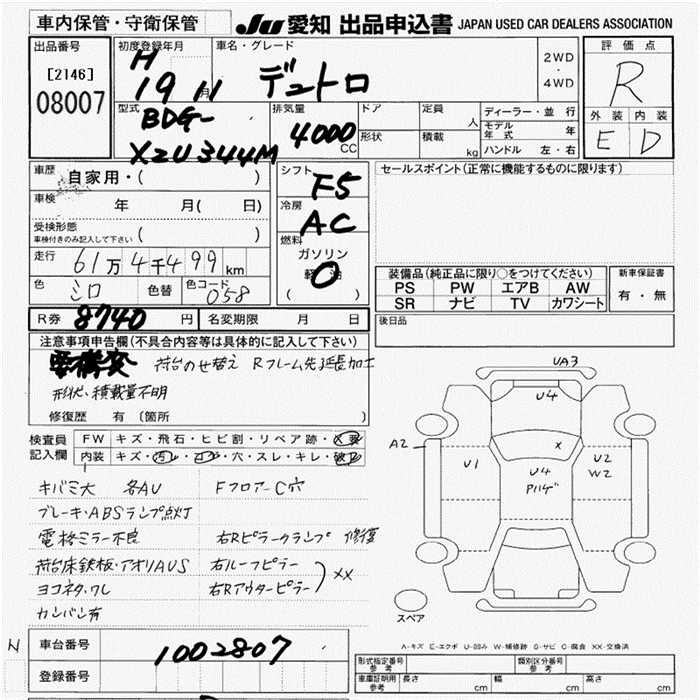 車内保管・守衛保管
JU 愛知 出品申込書 JAPAN USED CAR DEALERS ASSOCIATION
出品番号
[2146]
08007
初度登録年月
H
19 月 11
車名・グレード
デュトロ
2WD
・
4WD
評価点
R
外装 内装
E D
型式
BDG-
XZU344M
排気量
4000
CC
ドア
形状
定員
人
積載
kg
ディーラー・並行
モデル年式 年
ハンドル 左・右
車歴
自家用・( )
車検
年 月( 日)
受検形態
車検付きのみ記入して下さい ( )
走行
61万4千499km
色
シロ
色替
色コード
058
シフト
F5
冷房
AC
燃料
ガソリン
軽油
( )
セールスポイント(正常に機能するものに限ります)
装備品(純正品に限り○をつけてください)
PS PW エアB AW
SR ナビ TV カワシート
新車保証書
有・無
R券 8740 円
名変期限 月 日
後日品
注意事項申告欄(不具合内容等は具体的に記入して下さい)
荷台のせ替え Rフレーム先延長加工
形状、積載量不明
修復歴 有 〔箇所 〕
検査員
記入欄
FW キズ・飛石・ヒビ割・リペア跡・X要
内装 キズ・汚レ・コゲ・穴・スレ・キレ・
キバミ大 各AU FフロアーC穴
ブレーキ・ABSランプ点灯
電格ミラー不良 右Rピラークランプ 修復
荷台床鉄板・アオリAUS 右ルーフピラー
ヨコネタ、ワレ 右Rアウターピラー XX
カンバン有
UA3
U4
A2
X
U1
U4
Pハゲ
U2
W2
スペア
A-キズ E-エクボ U-凹み W-補修跡 S-サビ C-腐食 XX-交換済
N
車台番号
1002807
登録番号
形式指定番号
参考
類別区分番号
参考
車庫証明用
参考
長さ cm
幅 cm
高さ cm